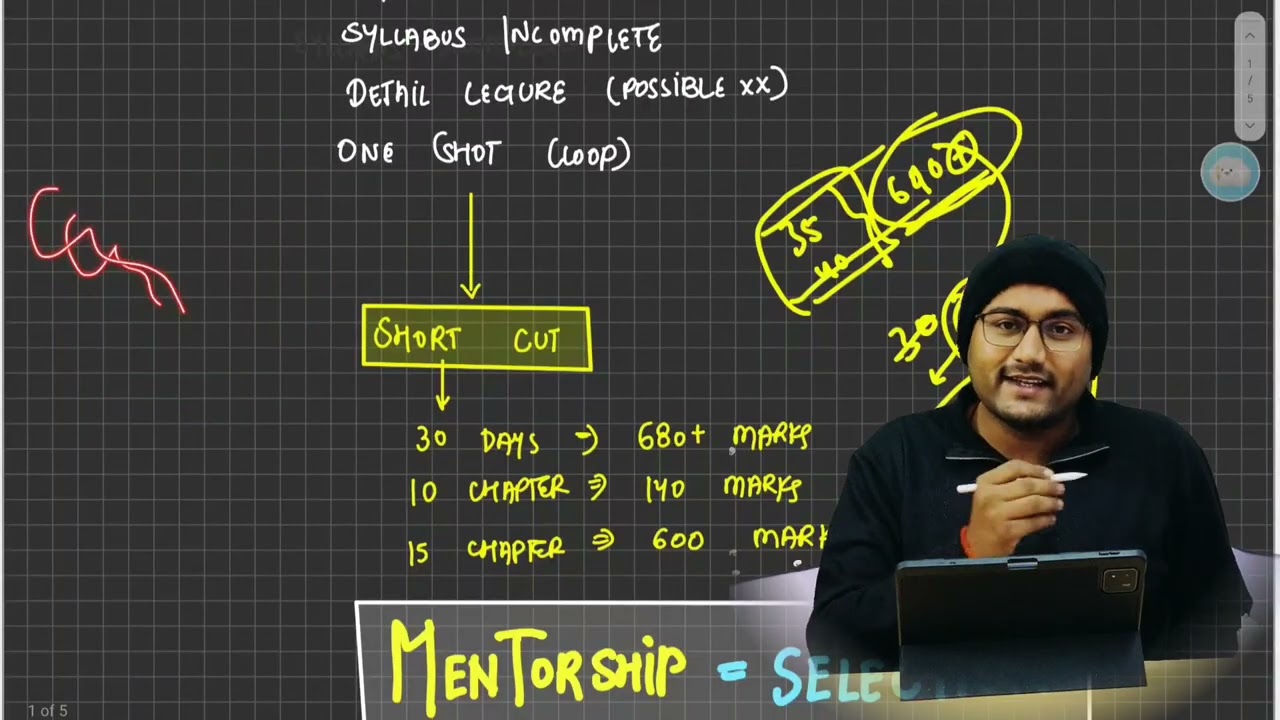 SYLLABUS INCOMPLETE
DETAIL LECTURE (POSSIBLE XX)
ONE SHOT (LOOP)
1
/
5
690
35
40
30
SHORT CUT
30 DAYS → 680+ MARKS
10 CHAPTER ⇒ 140 MARKS
15 CHAPTER ⇒ 600 MARK
MENTORSHIP = SELEC
1 of 5